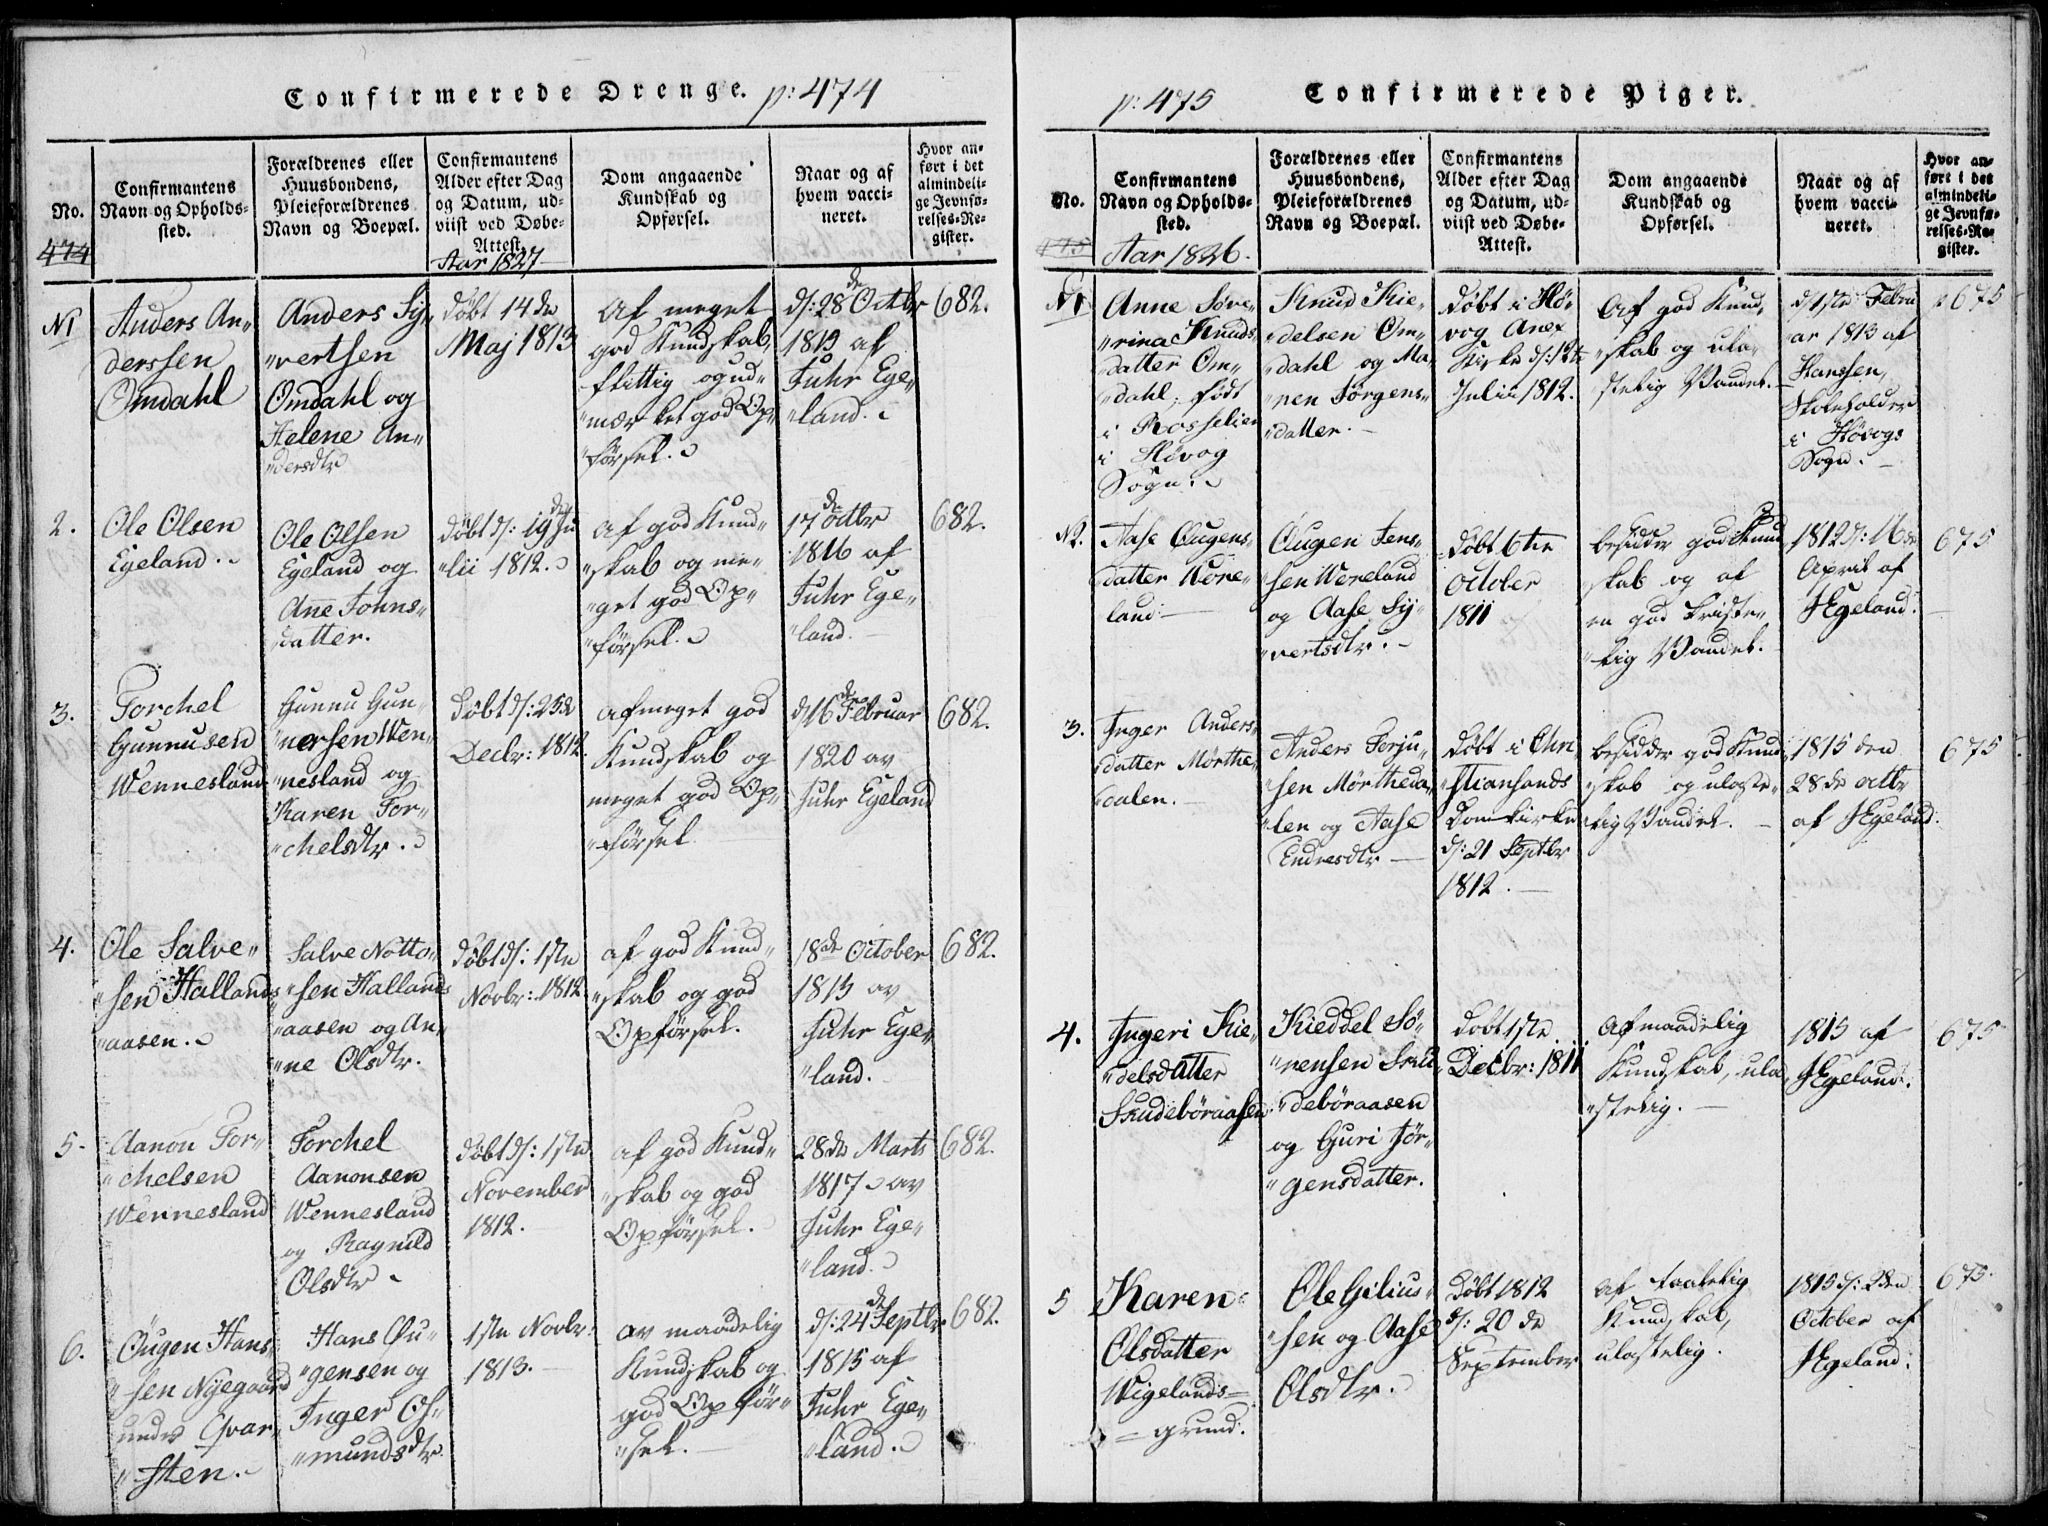 Confirmerede Drenge. p: 474
No.
474
Confirmantens
Navn og Opholds-
sted.
Forældrenes eller
Huusbondens,
Pleieforældrenes
Navn og Boepæl.
Confirmantens
Alder efter Dag
og Datum, ud-
viist ved Døbe-
Attest.
Aar 1827
Dom angaaende
Kundskab og
Opførsel.
Naar og af
hvem vacci-
neret.
Hvor an-
ført i det
almindeli-
ge Jevnfø-
relses-Re-
gister.
N1
Anders An-
derssen
Omdahl
Anders Sy-
"vertsen
Omdahl og
Helene An-
"dersdtr
døbt 14de
Maj 1813
Af meget
god Kundskab,
flittig og ud-
"mærket god Op-
"førsel.
d: 28de Octbr
1815 af
Juhr Ege-
"land.
682.
2.
Ole Olsen
Egeland.
Ole Olsen
Egeland og
Anne Johns-
datter.
døbt d: 19de Ju
"lii 1812.
af god Kund-
"skab og me-
"get god Op-
"førsel.
17de Octbr
1816 af
Juhr Ege-
"land.
682.
3.
Torchel
Gunnusen
Wennesland
Gunnu Gun-
"nersen Wen-
"nesland og
Karen Tor-
"chelsdtr.
Døbt d: 25de
Decbr: 1812.
af meget god
Kundskab og
meget god Op-
"førsel
d 16de Februar
1820 av
Juhr Egeland
682.
4.
Ole Salve-
"sen Hallands
"aasen.
Salve Notto-
"sen Hallands
"aasen og An-
"ne Olsdtr.
døbt d: 1ste
Novbr: 1812
af god Kund-
"skab og god
Opførsel.
18de October
1815 av
Juhr Ege-
"land.
682.
5.
Aanon Tor-
"chelsen
Wennesland
Torchel
Aanonsen
Wennesland
og Ragnild
Olsdtr
døbt d: 1ste
November
1812.
af god Kund-
"skab og god
Opførsel.
28de Marts
1817 av
Juhr Ege-
"land.
682.
6.
Øugen Hans-
"sen Nyegaard
under Qvar-
"sten.
Hans Øu-
"gensen og
Inger Os-
"mundsdtr.
1ste Novbr.
1813.
av maadelig
Kundskab og
god Opfør-
"sel.
d: 24de Septbr
1815 af
Juhr Ege-
"land.
682.
p: 475 Confirmerede Piger.
No.
475
Confirmantens
Navn og Opholds-
sted.
Aar 1826.
Forældrenes eller
Huusbondens,
Pleieforældrenes
Navn og Boepæl.
Confirmantens
Alder efter Dag
og Datum, ud-
viist ved Døbe-
Attest.
Dom angaaende
Kundskab og
Opførsel.
Naar og af
hvem vacci-
neret.
Hvor an-
ført i det
almindeli-
ge Jevnfø-
relses-Re-
gister.
N1.
Anne Søve-
"rina Knuds
datter Om-
"dahl, født
i Rosselien
i Høvog
Sogn.
Knud Kie-
"delsen Om-
"dahl og Ma-
"ren Jørgens-
"datter.
døbt i Hø-
vog Anex
Kirke d: 12te
Julii 1812.
Af god Kund-
"skab og ula-
stelig Vandel.
d 1ste Febru
"ar 1813 af
Hanssen,
Skoleholder
i Høvogs
Sogn.
675
N2.
Aase Øugens-
datter Wore-
land.
Øugen Jens-
"sen Woreland
og Aase Sy-
"vertsdtr.
døbt 6te
October
1811
besidder god Kund
skab og af
en god kriste-
"lig Vandel.
1812 d: 16de
April af
JEgeland.
675
3.
Inger Anders-
datter Mørthe-
"dalen.
Anders Terju-
"sen Mørtheda-
"len og Aase
Endresdtr
døbt i Chri
"stiansands
Domkirke
d: 21 Septbr
1812.
besidder god Kund
"skab og ulaste-
"lig Vandel.
1815 den
28de Octbr
af JEgeland.
675
4.
Ingeri Kie-
"delsdatter
Skudebøraasen
Kieddel Sø-
"rensen Sku
"debøraasen
og Guri Jør-
"gensdatter.
Døbt 1ste
Decbr: 1811
Af maadelig
Kundskab, ula
"stelig.
1815 af
JEgeland.
675
5
Karen
Olsdatter
Wigelands-
= grund.
Ole Gilius-
"sen og Aase
Olsdtr.
Døbt 1812
d: 20de
September
af taalelig
Kundskab,
ulastelig.
1815 d: 2den
October af
JEgeland.
675.